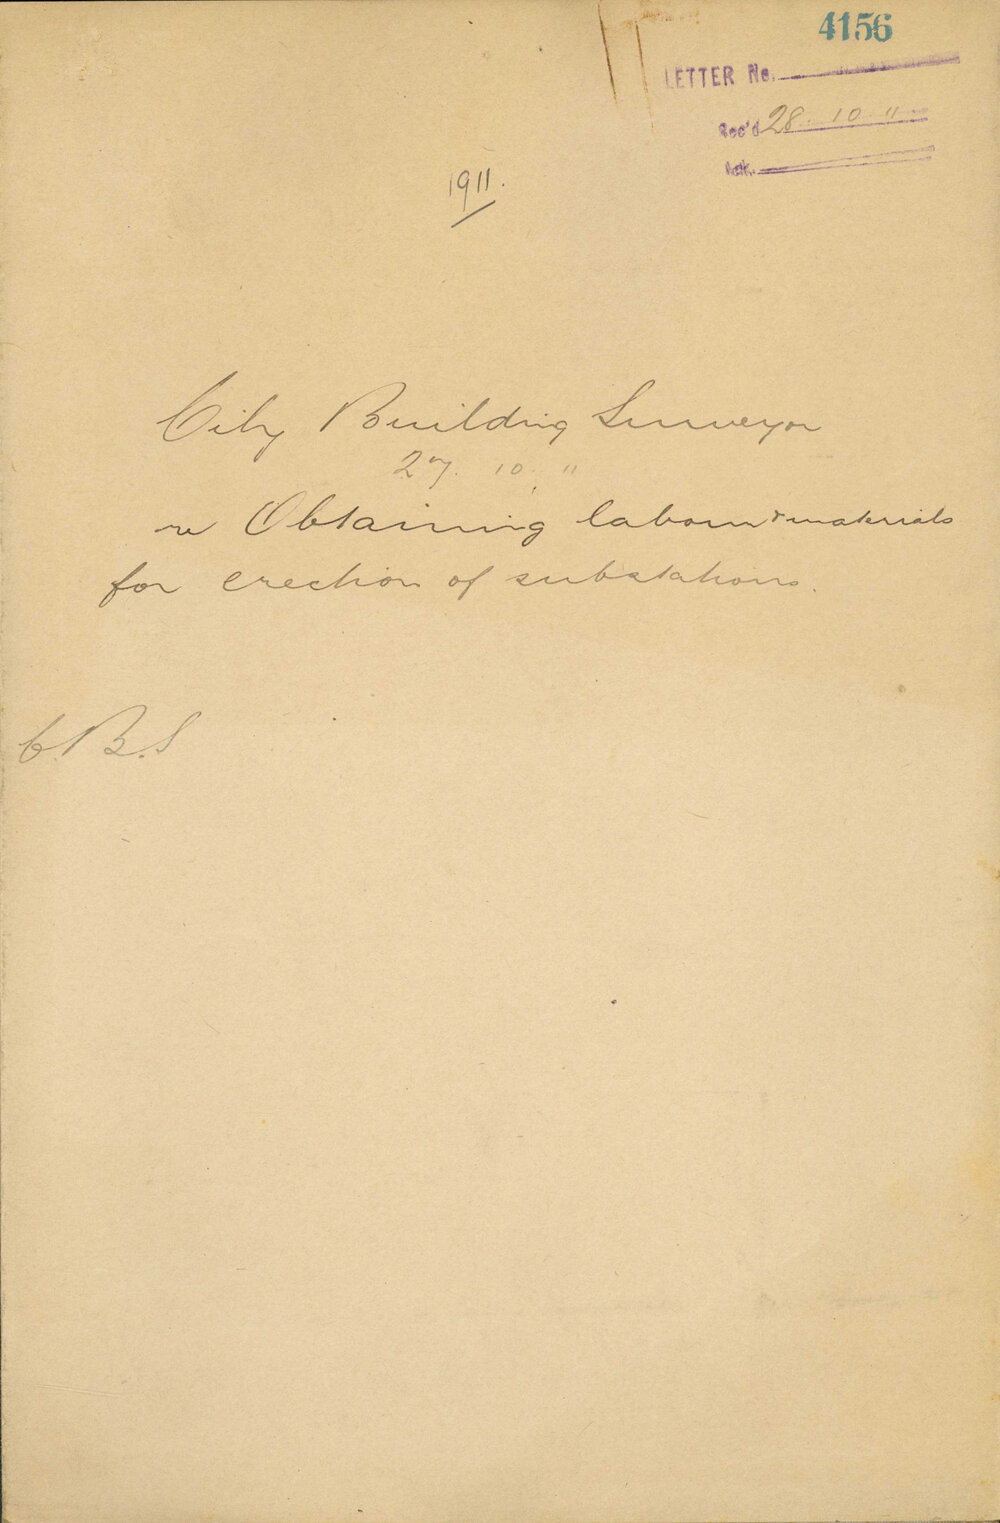 4156
LETTER No.
Rec'd 28. 10. 11
Ack.
1911.
City Building Surveyor
27. 10. 11
re Obtaining labour & materials
for erection of substations.
C.B.S